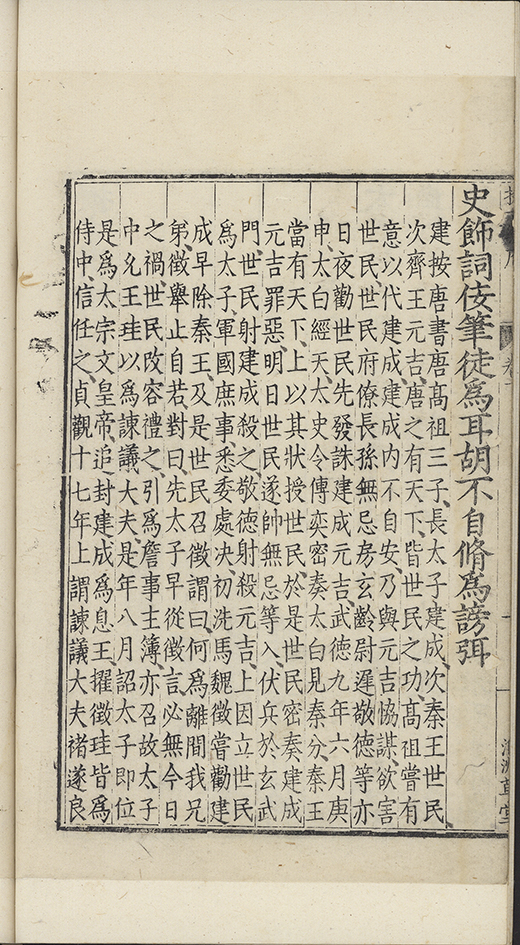 史飾詞佞筆徒爲耳胡不自脩爲謗弭
建按唐書唐髙祖三子、長太子建成、次秦王世民、
次齊王元吉、唐之有天下、皆世民之功、髙祖嘗有
意以代建成、建成内不自安、乃與元吉協謀、欲害
世民、世民府僚長孫無忌房玄齡尉遲敬徳等亦
日夜勸世民先發誅建成元吉武徳九年六月庚
申、太白經天、太史令傅奕密奏太白見秦分、秦王
當有天下、上以其狀授世民、於是世民密奏建成
元吉罪惡、明日世民遂帥無忌等入、伏兵於玄武
門、世民射建成殺之、敬徳射殺元吉、上因立世民
爲太子、軍國庶事、悉委處决、初洗馬魏徵嘗勸建
成早除秦王、及是世民召徵謂曰、何爲離間我兄
弟、徵舉止自若、對曰、先太子早從徵言、必無今日
之禍、世民改容禮之、引爲詹事主簿、亦召故太子
中允王珪以爲諫議大夫、是年八月詔太子即位
是爲太宗文皇帝、追封建成爲息王、擢徵珪皆爲
侍中、信任之、貞觀十七年上謂諫議大夫褚遂良